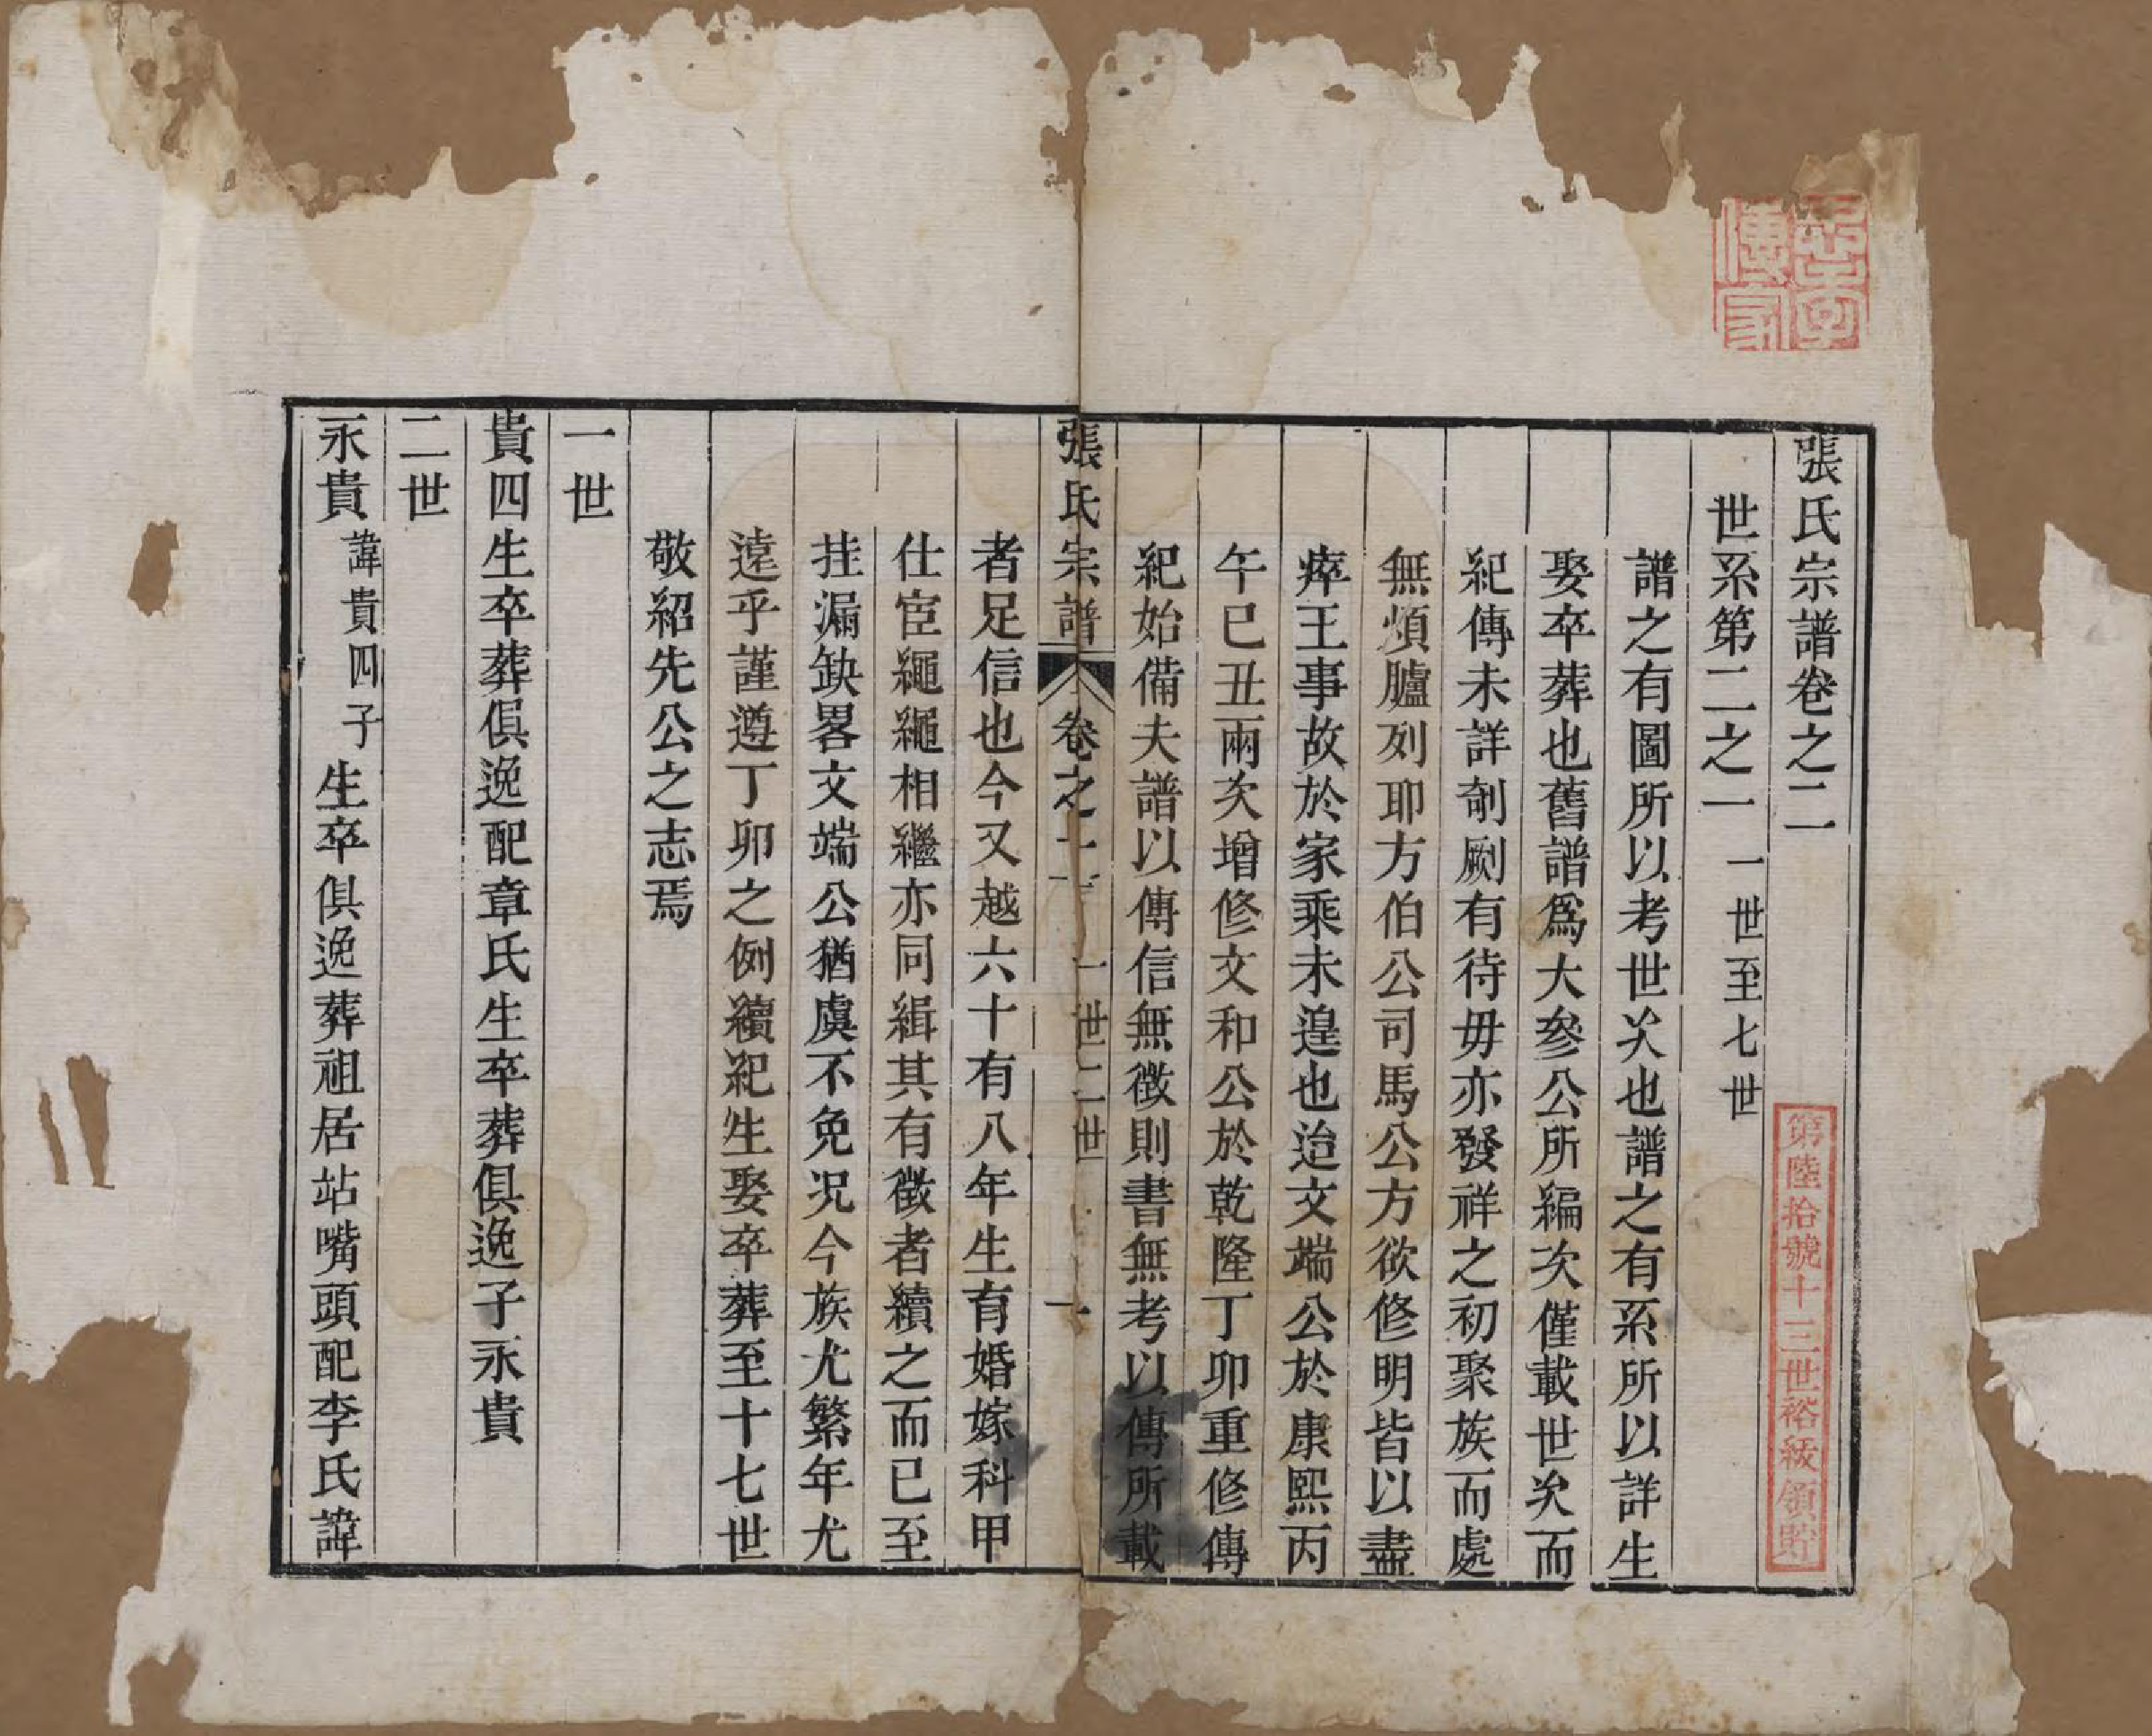 張氏宗譜卷之二
世系第二之一 一世至七世
譜之有圖所以考世次也譜之有系所以詳生
娶卒葬也舊譜爲大參公所編次僅載世次而
紀傳未詳剞劂有待毋亦發祥之初聚族而處
無煩臚列耶方伯公司馬公方欲修明皆以盡
瘁王事故於家乘未遑也迨文端公於康熙丙
午巳丑兩次增修文和公於乾隆丁卯重修傳
紀始備夫譜以傳信無徵則書無考以傳所載
張氏宗譜 卷之二 一世二世 一
者足信也今又越六十有八年生育婚嫁科甲
仕宦繩繩相繼亦同緝其有徵者續之而已至
挂漏缺畧文端公猶虞不免况今族尤繁年尤
遠乎謹遵丁卯之例續紀生娶卒葬至十七世
敬紹先公之志焉
一世
貴四生卒葬俱逸配章氏生卒葬俱逸子永貴
二世
永貴 諱貴四子 生卒俱逸葬祖居站嘴頭配李氏諱
忠孝傳家
第陸拾號十三世裕級領貯